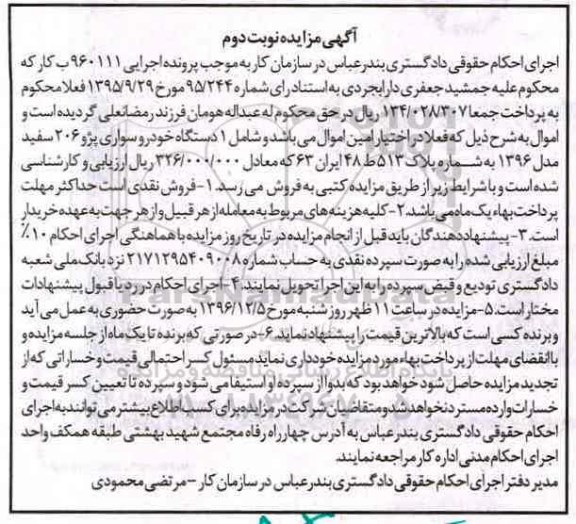 آگهی مزایده نوبت دوم
اجرای احکام حقوقی دادگستری بندرعباس در سازمان کار به موجب پرونده اجرایی ۹۶۰۱۱۱ب کار که
محکوم علیه جمشید جعفری دارابجردی به استناد رای شماره ۹۵/۲۴۴ مورخ ۱۳۹۵/۹/۲۹ فعلا محکوم
به پرداخت جمعا ۱۳۴/۰۲۸/۳۰۷ ریال در حق محکوم له عبداله هومان فرزند رمضانعلی گردیده است و
اموال به شرح ذیل که فعلا در اختیار امین اموال می باشد و شامل ۱ دستگاه خودرو سواری پژو ۲۰۶ سفید
مدل ۱۳۹۶ به شماره پلاک ۵۱۳ ط ۴۸ ایران ۶۳ که معادل ۳۲۶/۰۰۰/۰۰۰ ریال ارزیابی و کارشناسی
شده است و با شرایط زیر از طریق مزایده کتبی به فروش می رسد. ۱-فروش نقدی است حداکثر مهلت
پرداخت بهاء یک ماه می باشد. ۲-کلیه هزینه های مربوط به معامله از هر قبیل و از هر جهت به عهده خریدار
است. ۳- پیشنهاد دهندگان باید قبل از انجام مزایده در تاریخ روز مزایده با هماهنگی اجرای احکام ۱۰٪
مبلغ ارزیابی شده را به صورت سپرده نقدی به حساب شماره ۲۱۷۱۲۹۵۴۰۹۰۰۸ نزد بانک ملی شعبه
دادگستری تودیع و قبض سپرده را به این اجرا تحویل نمایند. ۴-اجرای احکام در رد یا قبول پیشنهادات
مختار است. ۵-مزایده در ساعت ۱۱ ظهر روز شنبه مورخ ۱۳۹۶/۱۲/۵ به صورت حضوری به عمل می آید
و برنده کسی است که بالاترین قیمت را پیشنهاد نماید. ۶-در صورتی که برنده تا یک ماه از جلسه مزایده و
با انقضای مهلت از پرداخت بهاء مورد مزایده خودداری نماید مسئول کسر احتمالی قیمت و خساراتی که از
تجدید مزایده حاصل شود خواهد بود که بدوا از سپرده او استیفا می شود و سپرده تا تعیین کسر قیمت و
خسارات وارده مسترد نخواهد شد و متقاضیان شرکت در مزایده برای کسب اطلاع بیشتر می توانند به اجرای
احکام حقوقی دادگستری بندرعباس به آدرس چهارراه رفاه مجتمع شهید بهشتی طبقه همکف واحد
اجرای احکام مدنی اداره کار مراجعه نمایند.
مدیر دفتر اجرای احکام حقوقی دادگستری بندرعباس در سازمان کار -مرتضی محمودی